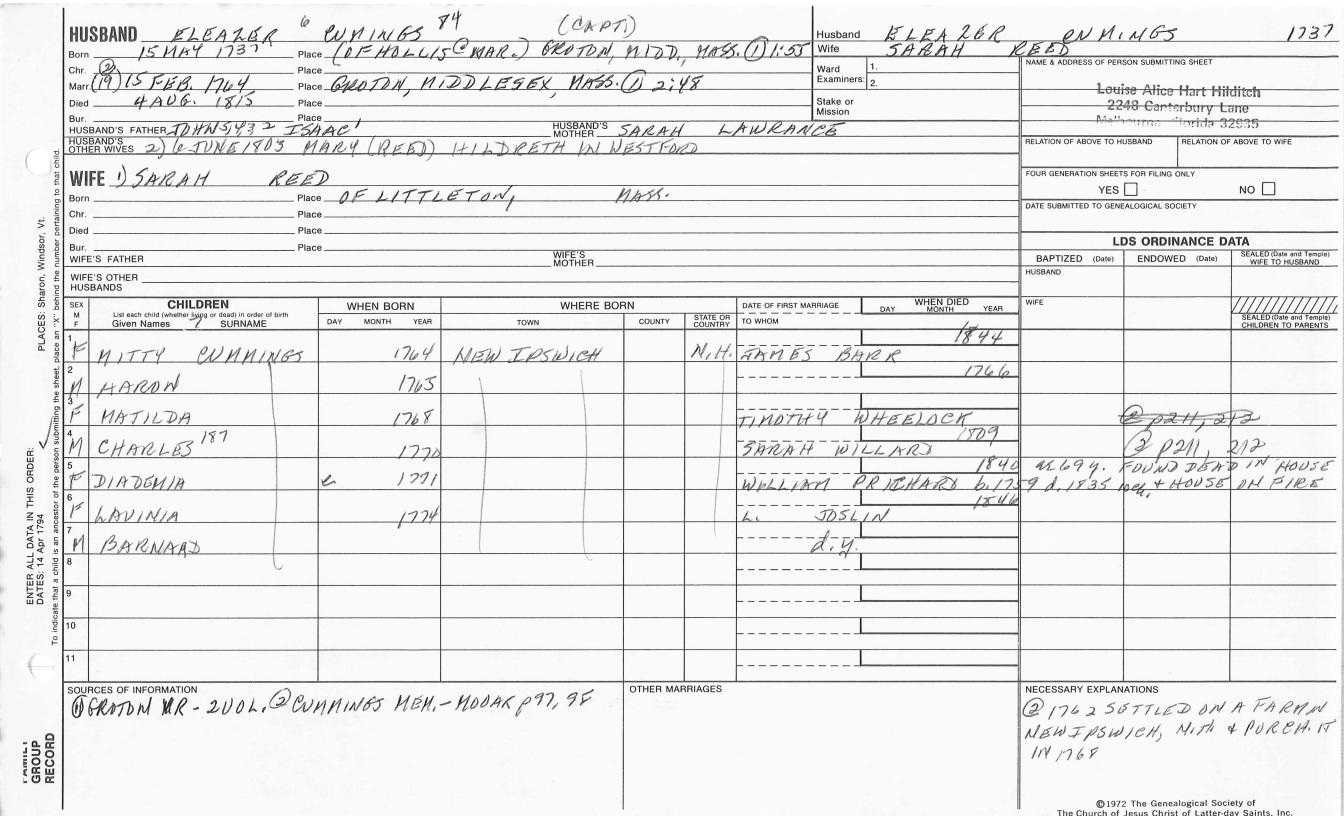 HUSBAND ELEAZER 6 CUMINGS 84 (CAPT)
Born 15 MAY 1737 Place (OF HOLLIS @ MAR.) GROTON, MIDD, MASS. ① 1:55
Chr. ② Place
Marr (19) 15 FEB. 1764 Place GROTON, MIDDLESEX, MASS. ① 2:48
Died 4 AUG. 1815 Place
Bur. Place
HUSBAND'S FATHER JOHN5,4,3,2 ISAAC1 HUSBAND'S MOTHER SARAH LAWRANCE
HUSBAND'S OTHER WIVES 2) 6 JUNE 1803 MARY (REED) HILDRETH IN WESTFORD
WIFE 1) SARAH REED
Born Place OF LITTLETON, MASS.
Chr. Place
Died Place
Bur. Place
WIFE'S FATHER WIFE'S MOTHER
WIFE'S OTHER HUSBANDS
Husband ELEAZER CUMINGS 1737
Wife SARAH REED
Ward Examiners: 1.
2.
Stake or Mission
NAME & ADDRESS OF PERSON SUBMITTING SHEET
Louise Alice Hart Hilditch
2248 Canterbury Lane
Melbourne Florida 32935
RELATION OF ABOVE TO HUSBAND RELATION OF ABOVE TO WIFE
FOUR GENERATION SHEETS FOR FILING ONLY
YES NO
DATE SUBMITTED TO GENEALOGICAL SOCIETY
LDS ORDINANCE DATA
BAPTIZED (Date) ENDOWED (Date) SEALED (Date and Temple) WIFE TO HUSBAND
HUSBAND
WIFE
SEALED (Date and Temple) CHILDREN TO PARENTS
SEX M F CHILDREN WHEN BORN WHERE BORN DATE OF FIRST MARRIAGE WHEN DIED
List each child (whether living or dead) in order of birth
Given Names 7 SURNAME DAY MONTH YEAR TOWN COUNTY STATE OR COUNTRY TO WHOM DAY MONTH YEAR
1 1844
F MITTY CUMMINGS 1764 NEW IPSWICH N.H. JAMES BARR
2 1766
M AARON 1765
3
F MATILDA 1768 TIMOTHY WHEELOCK ② p211, 212
4 1809
M CHARLES 187 1770 SARAH WILLARD ② p211, 212
5 1840 ae 69 y. FOUND DEAD IN HOUSE
F DIADEMIA e 1771 WILLIAM PRICHARD b. 1759 d. 1835 & HOUSE ON FIRE
6 1846
F LAVINIA 1774 L. JOSLIN
7
M BARNARD d.y.
8
9
10
11
SOURCES OF INFORMATION
① GROTON VR - 2 VOL. ② CUMMINGS MEM. - MOOAR p 97, 98
OTHER MARRIAGES
NECESSARY EXPLANATIONS
② 1762 SETTLED ON A FARM IN
NEW IPSWICH, N.H. & PURCH. IT
IN 1768
©1972 The Genealogical Society of
The Church of Jesus Christ of Latter-day Saints, Inc.
ENTER ALL DATA IN THIS ORDER:
DATES: 14 Apr 1794 PLACES: Sharon, Windsor, Vt.
To indicate that a child is an ancestor of the person submitting the sheet, place an "X" behind the number pertaining to that child.
FAMILY GROUP RECORD